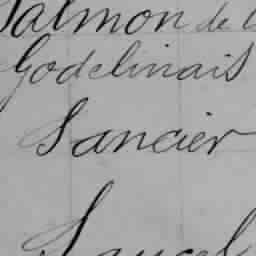 Salmon de l
Godelinais
Sancier
Saucel